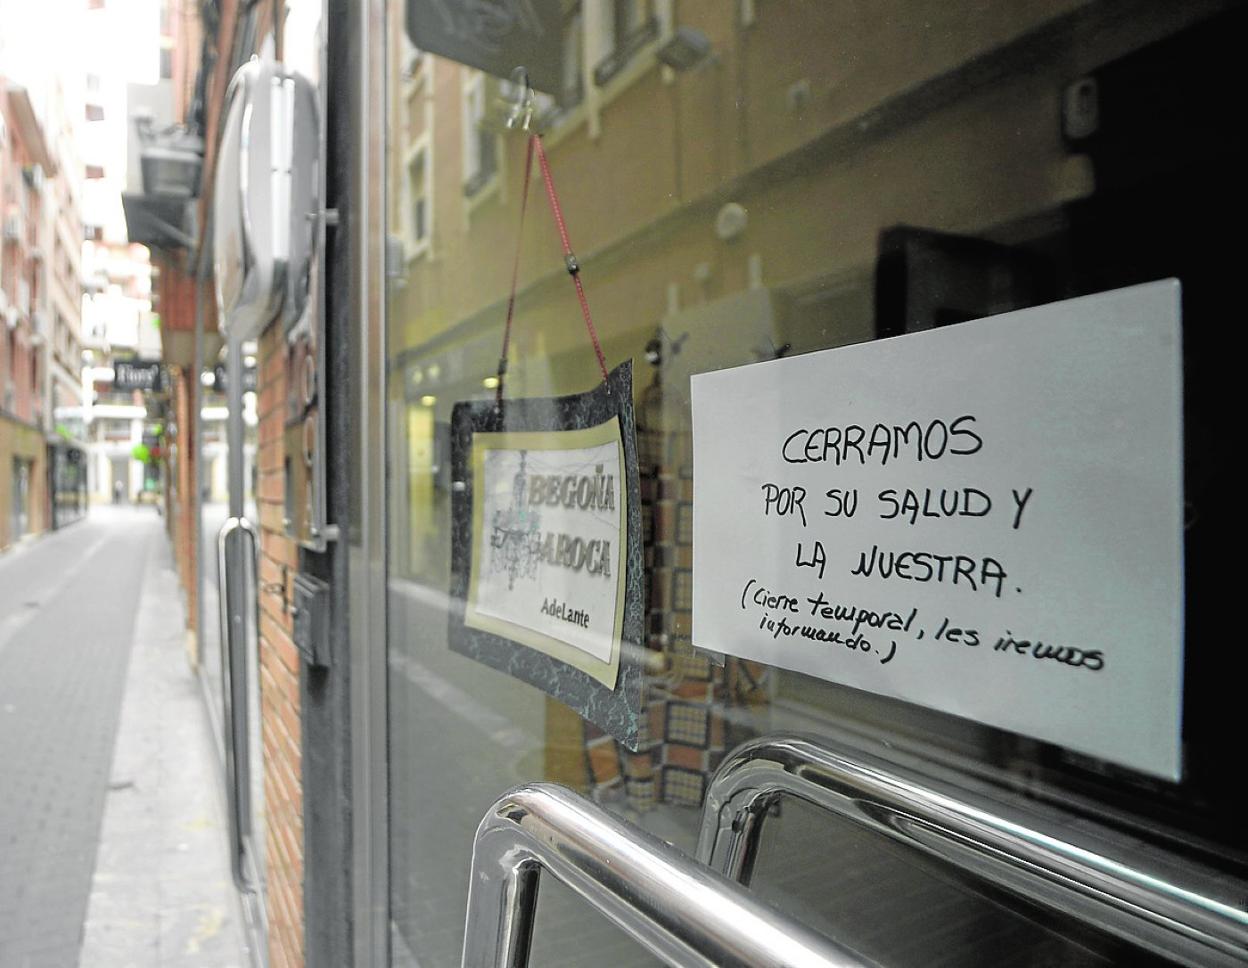 BEGOÑA
AROCA
AdeLante
CERRAMOS
POR SU SALUD Y
LA NUESTRA.
(Cierre temporal, les iremos
informando.)